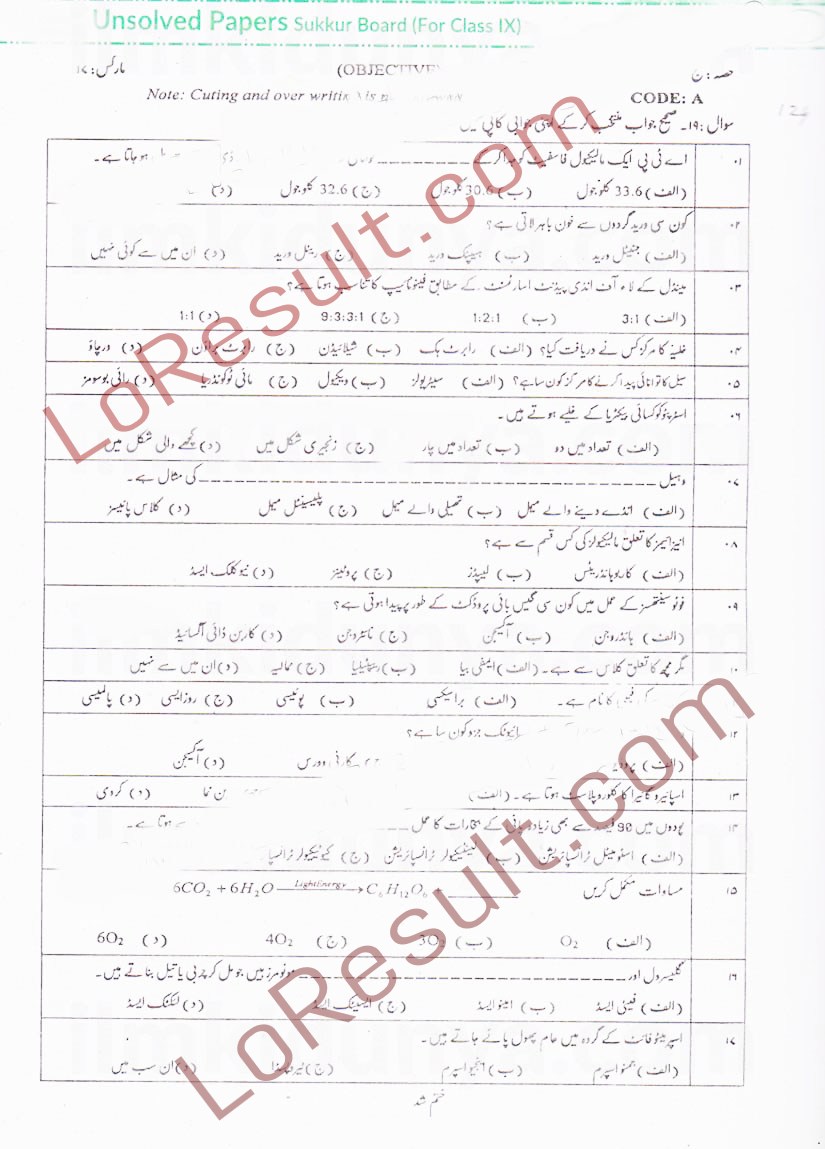 Unsolved Papers Sukkur Board (For Class IX)
حصہ : ج (OBJECTIVE) مارکس: ۱۷
Note: Cuting and over writi is n CODE: A
سوال :۱۹۔ صحیح جواب منتخب کر کے اپنی جوابی کاپی میں
۰۱ اے ٹی پی ایک مالیکیول فاسفیٹ کو جدا کر کے ہو جاتا ہے۔
(الف) 33.6 کلوجول (ب) 30.6 کلوجول (ج) 32.6 کلوجول (د)
۰۲ کون سی ورید گردوں سے خون باہر لاتی ہے؟
(الف) جنیٹل ورید (ب) ہیپٹک ورید (ج) رینل ورید (د) ان میں سے کوئی نہیں
۰۳ مینڈل کے لاء آف انڈی پینڈنٹ اسارٹمنٹ کے مطابق فینوٹائیپ کا تناسب ہوتا ہے؟
(الف) 3:1 (ب) 1:2:1 (ج) 9:3:3:1 (د) 1:1
۰۴ خلیئے کا مرکز کس نے دریافت کیا؟ (الف) رابرٹ ہک (ب) شیلائیڈن (ج) رابرٹ براؤن (د) ورچاؤ
۰۵ سیل کا توانائی پیدا کرنے کا مرکز کون سا ہے؟ (الف) سینٹریولز (ب) ویکیول (ج) مائی ٹوکونڈریا (د) رائی بوسومز
۰۶ اسٹریپٹوکوکسائی بیکٹریا کے خلیے ہوتے ہیں۔
(الف) تعداد میں دو (ب) تعداد میں چار (ج) زنجیری شکل میں (د) گچھے والی شکل میں
۰۷ وہیل ---------- کی مثال ہے۔
(الف) انڈے دینے والے میمل (ب) تھیلی والے میمل (ج) پلیسینٹل میمل (د) کلاس پائیسز
۰۸ انیزائیمز کا تعلق مالیکیولز کی کس قسم سے ہے؟
(الف) کاربوہائڈریٹس (ب) لیپڈز (ج) پروٹینز (د) نیوکلک ایسڈ
۰۹ فوٹوسینتھسز کے عمل میں کون سی گیس بائی پروڈکٹ کے طور پر پیدا ہوتی ہے؟
(الف) ہائڈروجن (ب) آکیجن (ج) نائٹروجن (د) کاربن ڈائی آکسائیڈ
۱۰ مگر مچھ کا تعلق کلاس سے ہے۔ (الف) ایمفی بیا (ب) ریپٹیلیا (ج) ممالیہ (د) ان میں سے نہیں
کی فیملی کا نام ہے۔ (الف) براسیکسی (ب) پوئیسی (ج) روزایسی (د) پالمیسی
۱۲ جزو کون سا ہے؟
(الف) (د) آکیجن
۱۳ اسپائیروگائیرا کا کلوروپلاسٹ ہوتا ہے۔ (الف) نما (د) کروی
۱۴ پودوں میں 90 فیصد سے بھی زیادہ پانی کے بخارات کا عمل ---- سے ہوتا ہے۔
(الف) اسٹومیٹل ٹرانسپائریشن (ب) لینٹیکیولر ٹرانسپائریشن (ج) کیوٹیکیولر ٹرانسپا
۱۵ مساوات مکمل کریں 6CO2 + 6H2O —LightEnergy→ C6H12O6 + ________
(الف) O2 (ب) 3O2 (ج) 4O2 (د) 6O2
۱۶ گلیسرول اور ---------- مونومرز ہیں جو مل کر چربی یا تیل بناتے ہیں۔
(الف) فیٹی ایسڈ (ب) امینو ایسڈ (ج) ایسیٹک ایسڈ (د) لیکٹک ایسڈ
۱۷ اسپرمیٹوفائٹ کے گروہ میں عام پھول پائے جاتے ہیں۔
(الف) جمنو اسپرم (ب) انجیو اسپرم (ج) (د) ان سب میں
ختم شد
LoResult.com
LoResult.com